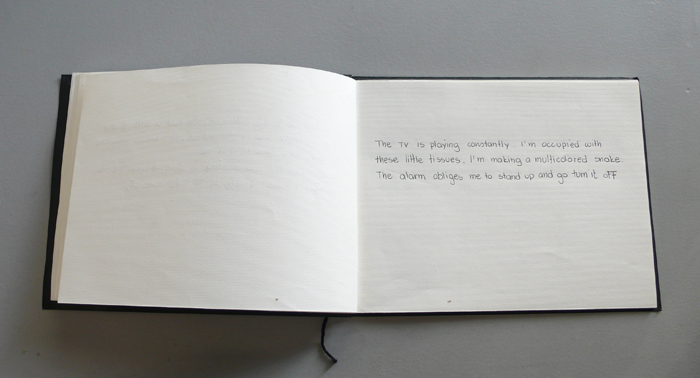 The TV is playing constantly. I'm occupied with
these little tissues. I'm making a multicolored snake.
The alarm obliges me to stand up and go turn it off